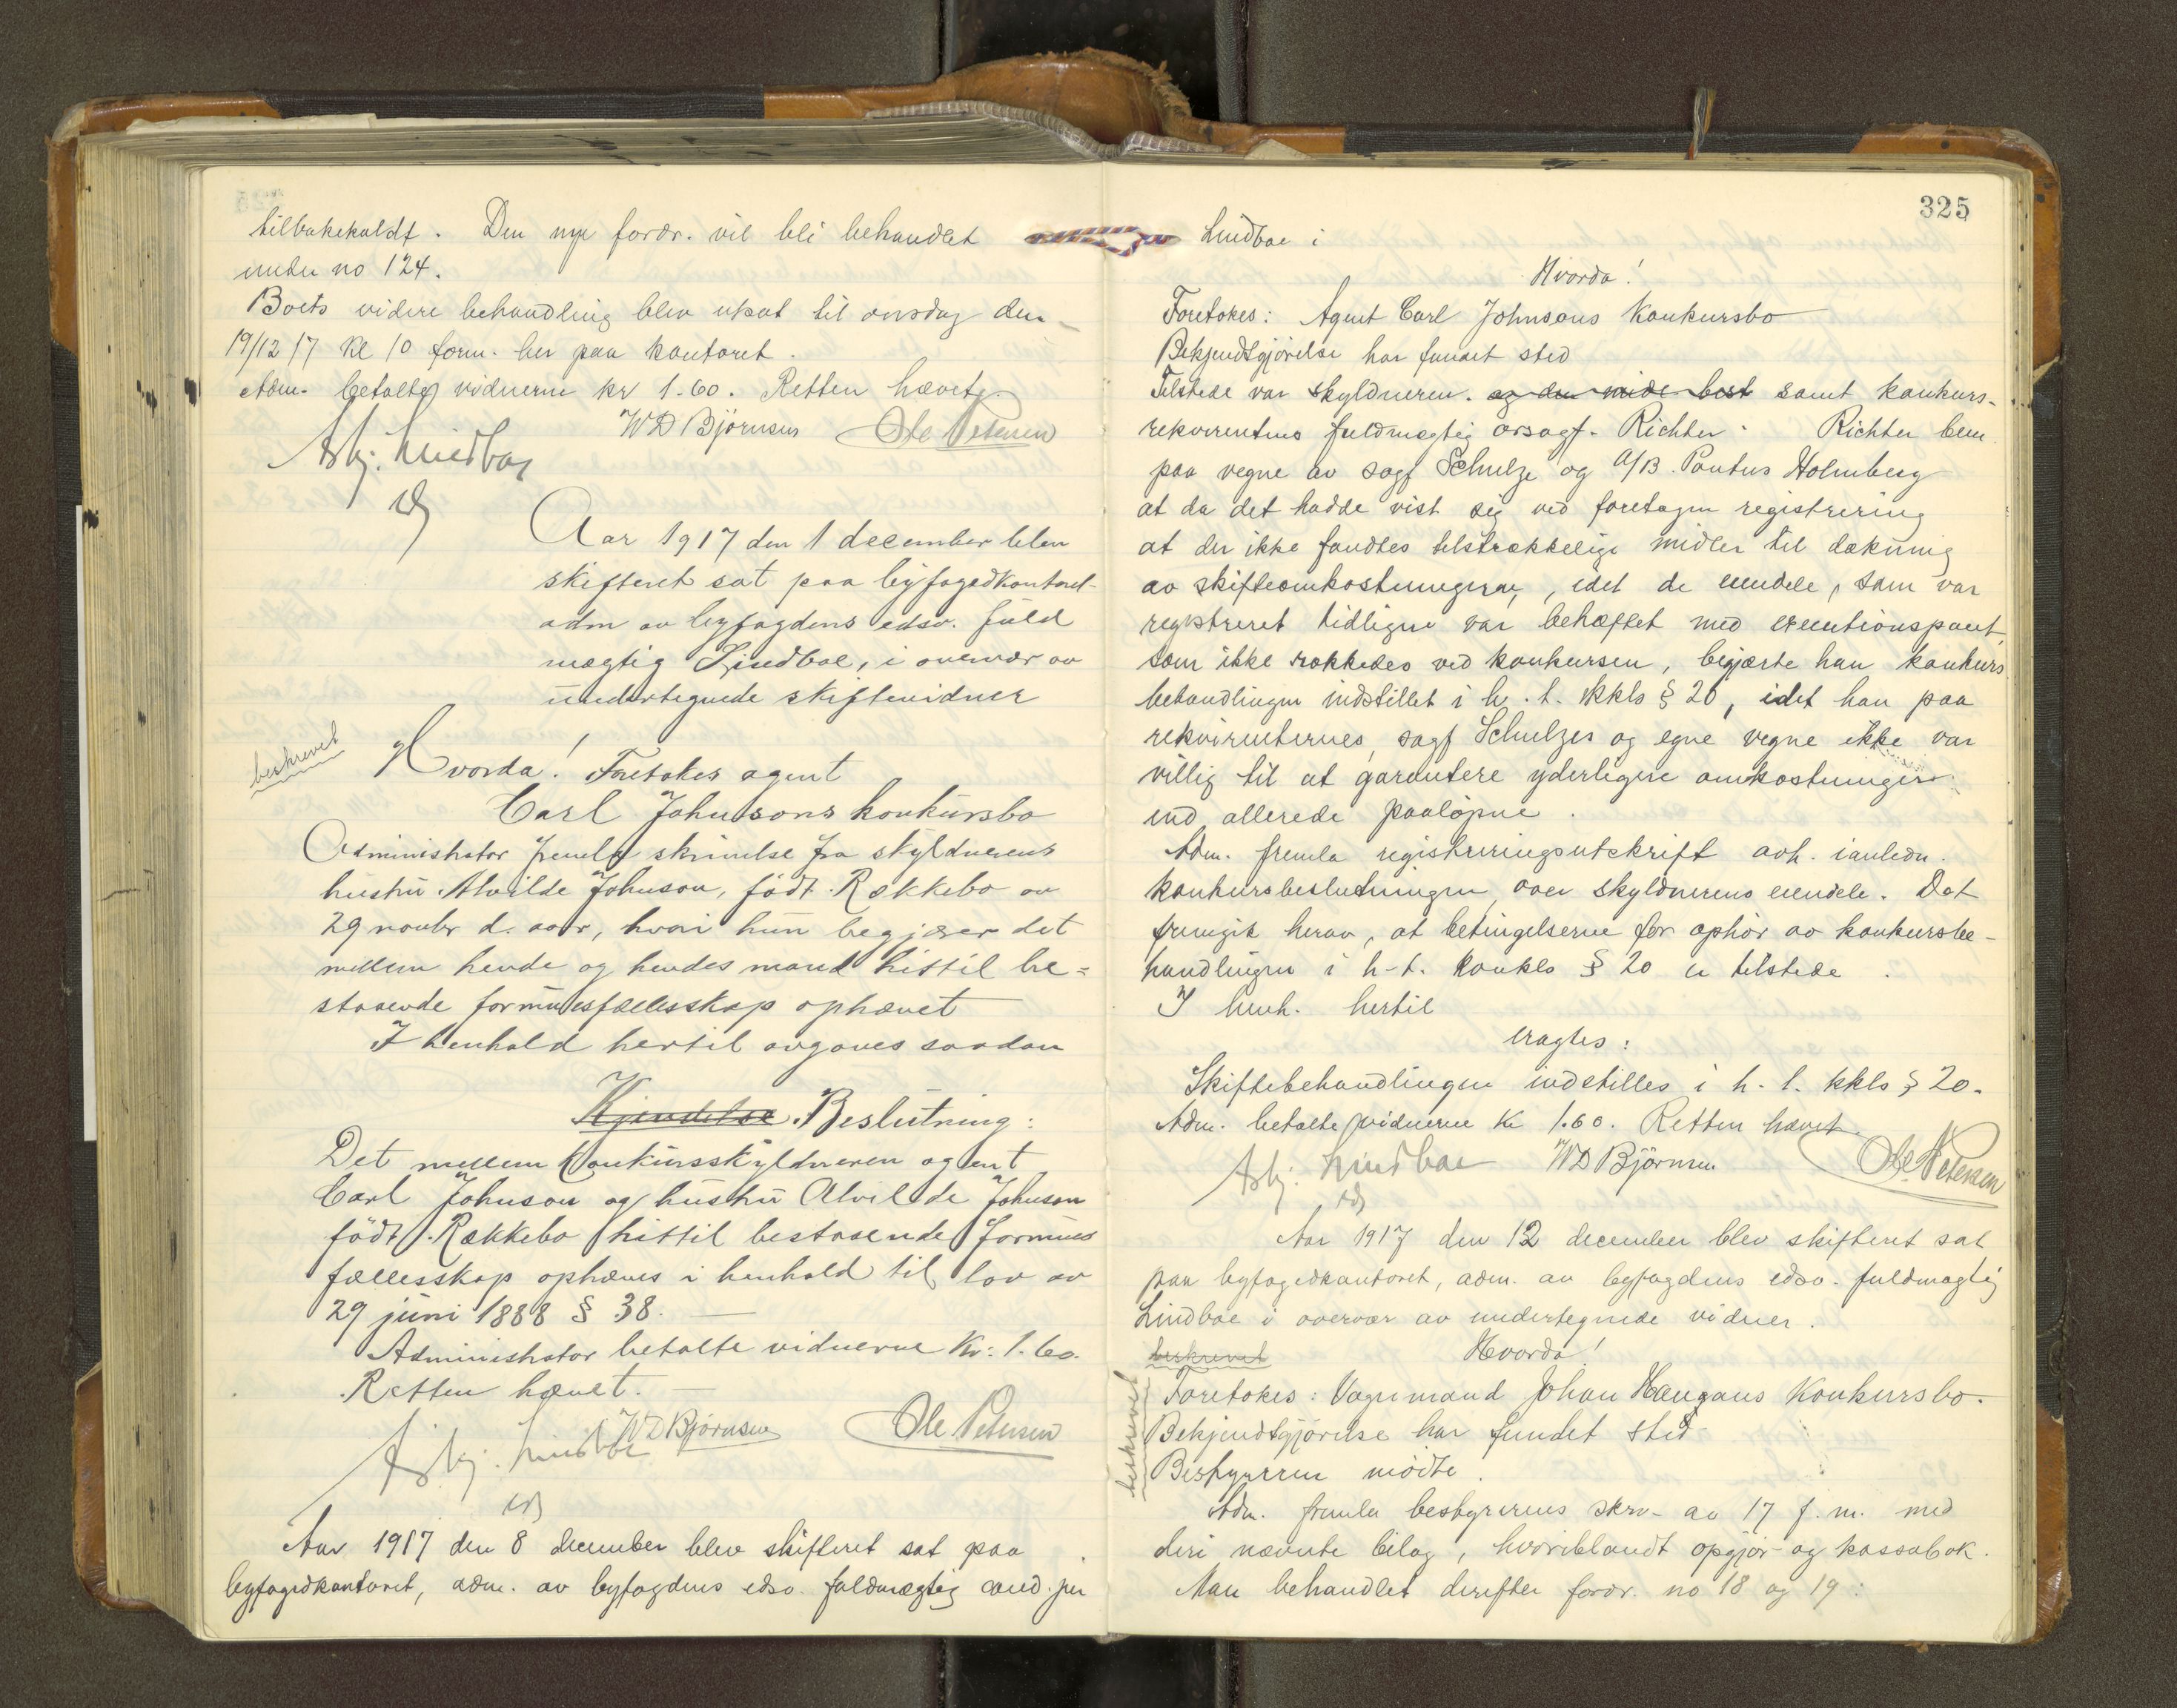 tilbakekaldt. Den nye fordr. vil bli behandlet
under no 124.
Boets videre behandling blev utsat til onsdag den
19/12 17 kl 10 form. her paa kontoret.
Adm. betalte vidnerne kr 1.60. Retten hævet.
Asbj. Lindboe
WD Björnsen Ole Petersen
Aar 1917 den 1 december blev
skifteret sat paa byfogedkontoret
adm av byfogdens edsv. fuld
mægtig Lindboe, i overvær av
undertegnede skiftevidner
beskrevet
Hvorda! Foretokes agent
Carl Johnsons konkursbo
Administrator fremla skrivelse fra skyldnerens
hustru Alvilde Johnson, födt Rækkebo av
29 novbr d. aar, hvori hun begjærer det
mellem hende og hendes mand hittil be=
staaende formuesfællesskap ophævet
I henhold hertil avgaves saadan
Kjendelse Beslutning:
Det mellem konkursskyldneren agent
Carl Johnson og hustru Alvilde Johnson
födt Rækkebo hittil bestaaende formues
fællesskap ophæves i henhold til lov av
29 juni 1888 § 38.
Administrator betalte vidnerne Kr: 1.60.
Retten hævet.
Asbj. Lindboe
WD Björnsen Ole Petersen
Aar 1917 den 8 december blev skifteret sat paa
byfogedkontoret, adm. av byfogdens edsv. fuldmægtig cand. jur
325
Lindboe i
Hvorda!
Foretokes: Agent Carl Johnsons Konkursbo
Bekjendtgjörelse har fundet sted
Tilstede var skyldneren. og den midl. best samt konkurs-
rekvirentens fuldmægtig orsagf. Richter. Richter bem.
paa vegne av sagf Schulze og A/B. Pontus Holmberg
at da det hadde vist sig ved foretagen registrering
at der ikke fandtes tilstrækkelige midler til dækning
av skifteomkostningerne, idet de eiendele, som var
registreret tidligere var behæftet med executionspant,
som ikke rokkedes ved konkursen, begjærte han konkurs
behandlingen indstillet i h. t. kkls § 20, idet han paa
rekvirenternes, sagf Schulzes og egne vegne ikke var
villig til at garantere yderligere omkostninger
end allerede paalöpne.
Adm. fremla registreringsutskrift avh. ianledn.
konkursbeslutningen over skyldnerens eiendele. Det
fremgik herav, at betingelserne for ophör av konkursbe-
handlingen i h-t. konkls § 20 er tilstede.
I henh. hertil
eragtes:
Skiftebehandlingen indstilles i h. t. kkls § 20.
Adm. betalte vidnerne Kr 1.60. Retten hævet.
Asbj. Lindboe WD Björnsen Ole Petersen
Aar 1917 den 12 december blev skifteret sat
paa byfogedkontoret, adm. av byfogdens edsv. fuldmægtig
Lindboe i overvær av undertegnede vidner.
beskrevet Hvorda!
beskrevet
Foretokes: Vognmand Johan Haugans Konkursbo.
Bekjendtgjörelse har fundet sted
Bestyreren mödte.
Adm. fremla bestyrerens skrv. av 17 f. m. med
deri nævnte bilag, hvoriblandt opgjör og kassabok.
Man behandlet derefter fordr. no 18 og 19: